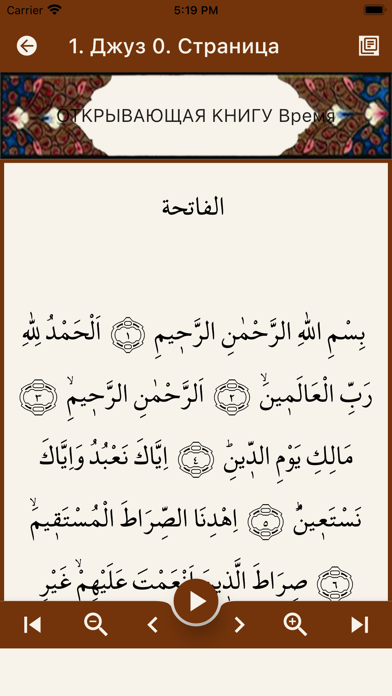 Carrier 5:19 PM
1. Джуз 0. Страница
ОТКРЫВАЮЩАЯ КНИГУ Время
الفاتحة
بِسْمِ اللهِ الرَّحْمٰنِ الرَّح۪يمِ ﴿١﴾ اَلْحَمْدُ لِلّٰهِ
رَبِّ الْعَالَم۪ينَۙ ﴿٢﴾ اَلرَّحْمٰنِ الرَّح۪يمِۙ ﴿٣﴾
مَالِكِ يَوْمِ الدّ۪ينِۜ ﴿٤﴾ اِيَّاكَ نَعْبُدُ وَاِيَّاكَ
نَسْتَع۪ينُۜ ﴿٥﴾ اِهْدِنَا الصِّرَاطَ الْمُسْتَق۪يمَۙ
﴿٦﴾ صِرَاطَ الَّذ۪ينَ اَنْعَمْتَ عَلَيْهِمْۙ غَيْرِ